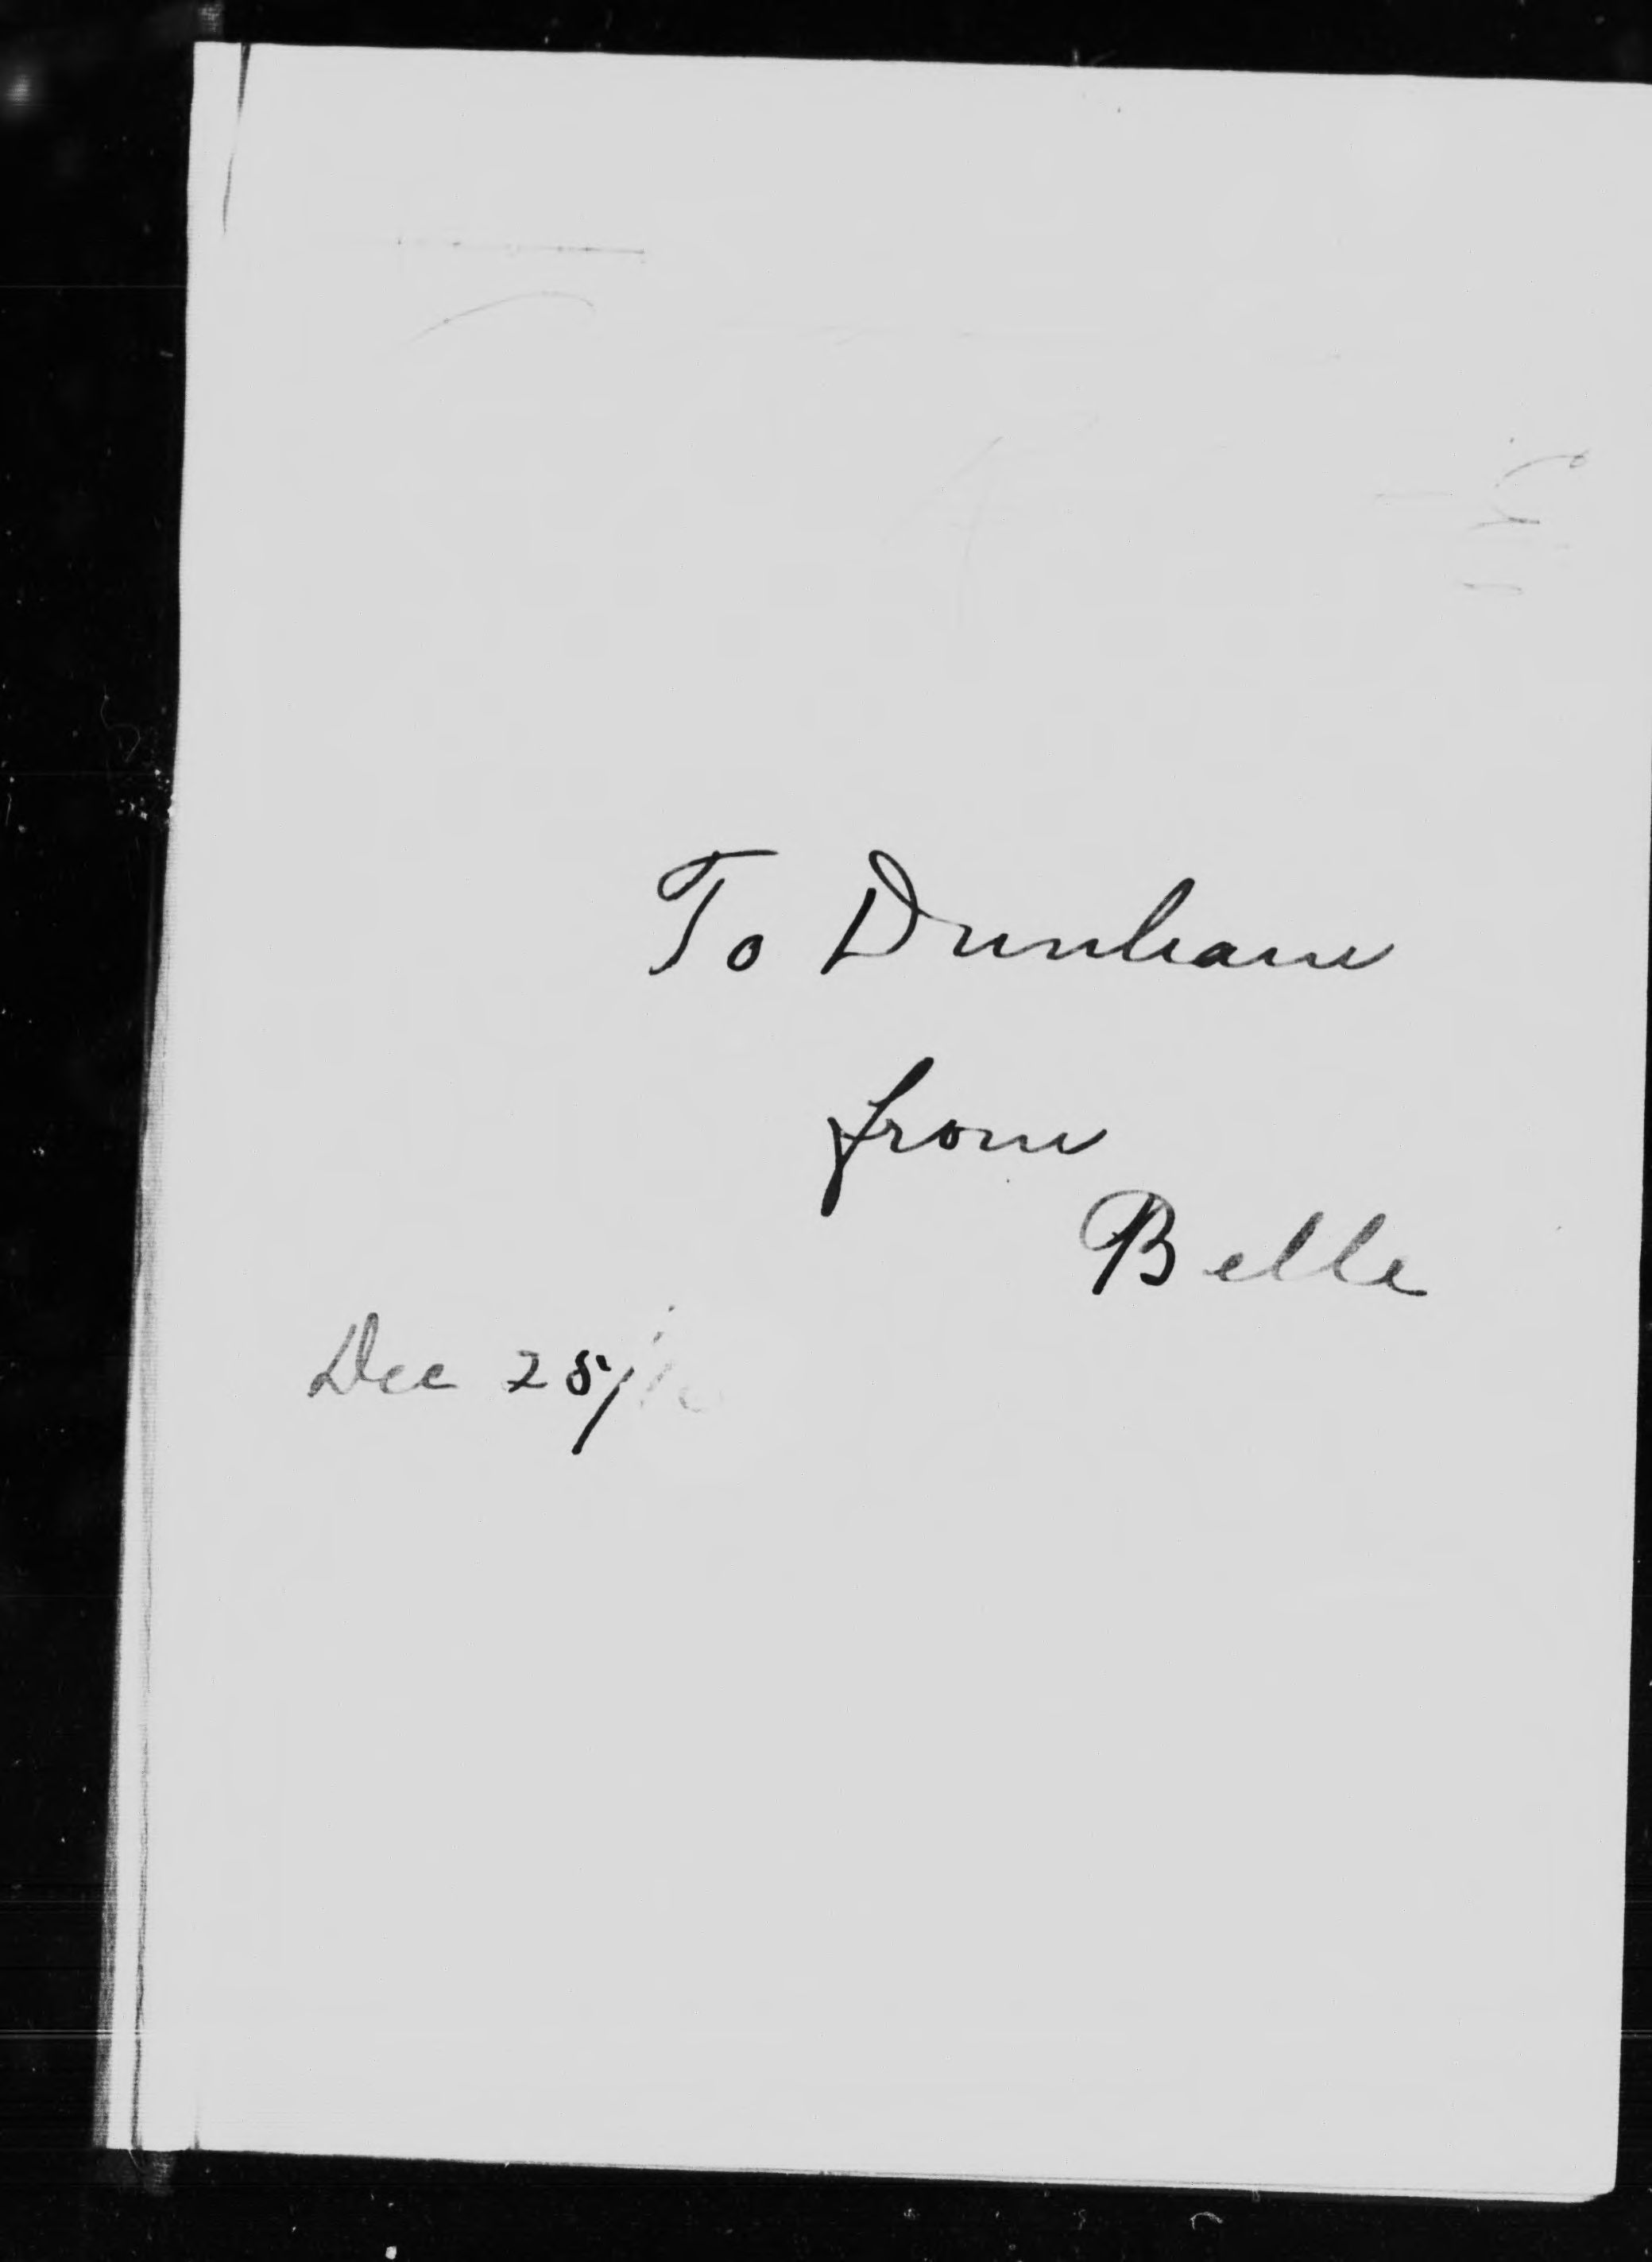 To Dunham
from
Belle
Dec 25/